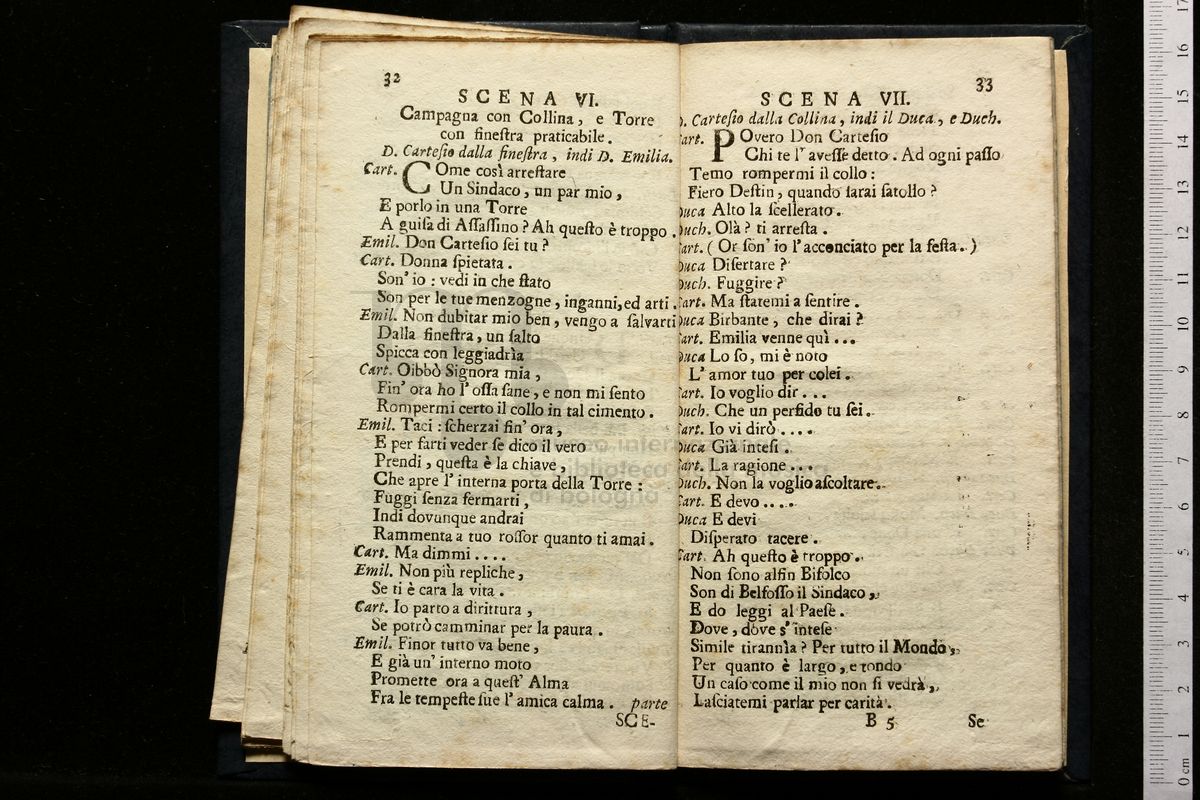 32
SCENA VI.
Campagna con Collina, e Torre
con fineſtra praticabile.
D. Carteſio dalla fineſtra, indi D. Emilia.
Cart. COme così arreſtare
Un Sindaco, un par mio,
E porlo in una Torre
A guiſa di Aſſaſſino? Ah queſto è troppo.
Emil. Don Carteſio ſei tu?
Cart. Donna ſpietata.
Son' io: vedi in che ſtato
Son per le tue menzogne, inganni, ed arti.
Emil. Non dubitar mio ben, vengo a ſalvarti
Dalla fineſtra, un ſalto
Spicca con leggiadrìa
Cart. Oibbò Signora mia,
Fin' ora ho l' oſſa ſane, e non mi ſento
Rompermi certo il collo in tal cimento.
Emil. Taci: ſcherzai fin' ora,
E per farti veder ſe dico il vero
Prendi, queſta è la chiave,
Che apre l' interna porta della Torre:
Fuggi ſenza fermarti,
Indi dovunque andrai
Rammenta a tuo roſſor quanto ti amai.
Cart. Ma dimmi....
Emil. Non più repliche,
Se ti è cara la vita.
Cart. Io parto a dirittura,
Se potrò camminar per la paura.
Emil. Finor tutto va bene,
E già un' interno moto
Promette ora a queſt' Alma
Fra le tempeſte ſue l' amica calma. parte
SCE-
33
SCENA VII.
D. Carteſio dalla Collina, indi il Duca, e Duch.
Cart. POvero Don Carteſio
Chi te l' aveſſe detto. Ad ogni paſſo
Temo rompermi il collo:
Fiero Deſtin, quando ſarai ſatollo?
Duca Alto la ſcellerato.
Duch. Olà? ti arreſta.
Cart. (Or ſon' io l' acconciato per la feſta.)
Duca Diſertare?
Duch. Fuggire?
Cart. Ma ſtatemi a ſentire.
Duca Birbante, che dirai?
Cart. Emilia venne quì...
Duca Lo ſo, mi è noto
L' amor tuo per colei.
Cart. Io voglio dir...
Duch. Che un perfido tu ſei.
Cart. Io vi dirò....
Duca Già inteſi.
Cart. La ragione...
Duch. Non la voglio aſcoltare.
Cart. E devo....
Duca E devi
Diſperato tacere.
Cart. Ah queſto è troppo.
Non ſono alfin Bifolco
Son di Belfoſſo il Sindaco,
E do leggi al Paeſe.
Dove, dove s' inteſe
Simile tirannìa? Per tutto il Mondo,
Per quanto è largo, e tondo
Un caſo come il mio non ſi vedrà,
Laſciatemi parlar per carità.
B 5
Se
museo internazionale
e biblioteca della musica
di bologna
0 cm 1 2 3 4 5 6 7 8 9 10 11 12 13 14 15 16 17